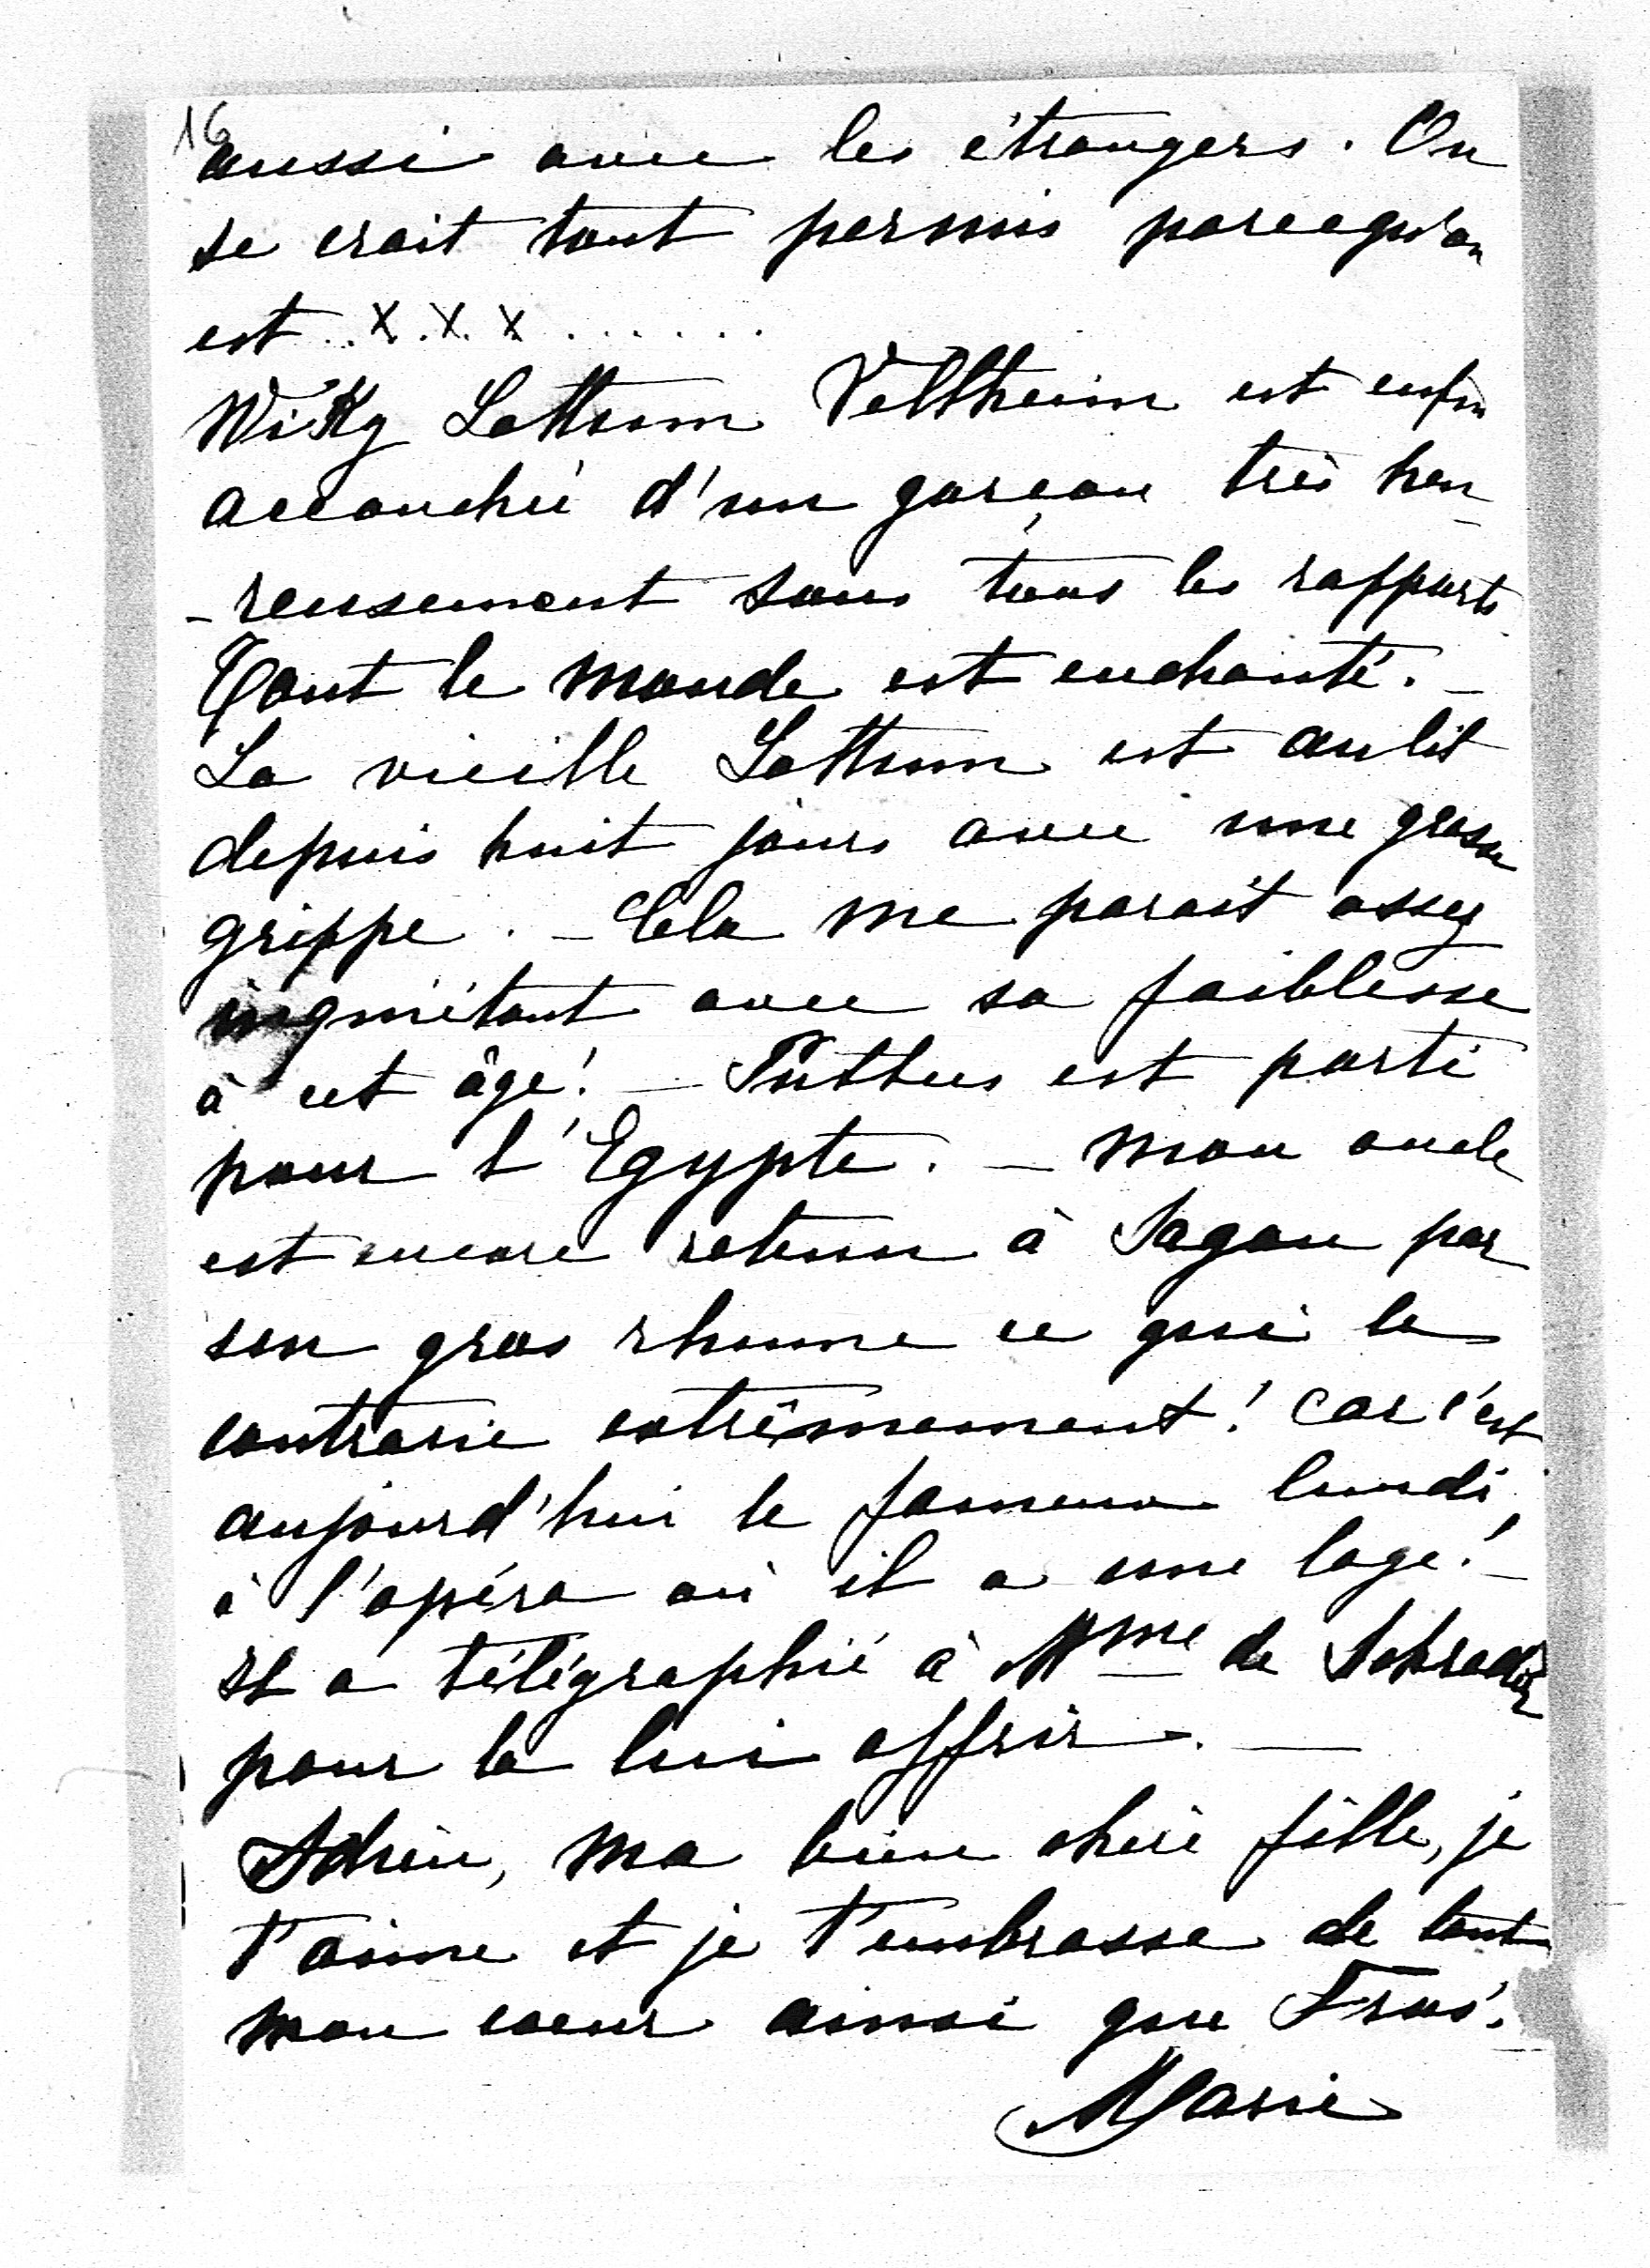 16
aussi avec les étrangers. On
se croit tout permis parcequ'on
est .. x. x. x ......
Wiky Lottum Veltheim est enfin
accouchée d'un garçon très heu-
-reusement sous tous les rapports.
Tout le monde est enchanté. –
La vieille Lottum est au lit
depuis huit jours avec une grosse
grippe. – Cela me parait assez
inquiétant avec sa faiblesse
à cet âge! – Putbus est parti
pour l'Egypte. – Mon oncle
est encore retenu à Sagan par
son gros rhume ce qui le
contrarie extrêmement! car c'est
aujourd'hui le fameux lundi,
à l'opéra où il a une loge! –
Il a télégraphié à Mme de Schrader
pour la lui offrir. —
Adieu, ma bien chère fille, je
t'aime et je t'embrasse de tout
mon coeur ainsi que
Marie